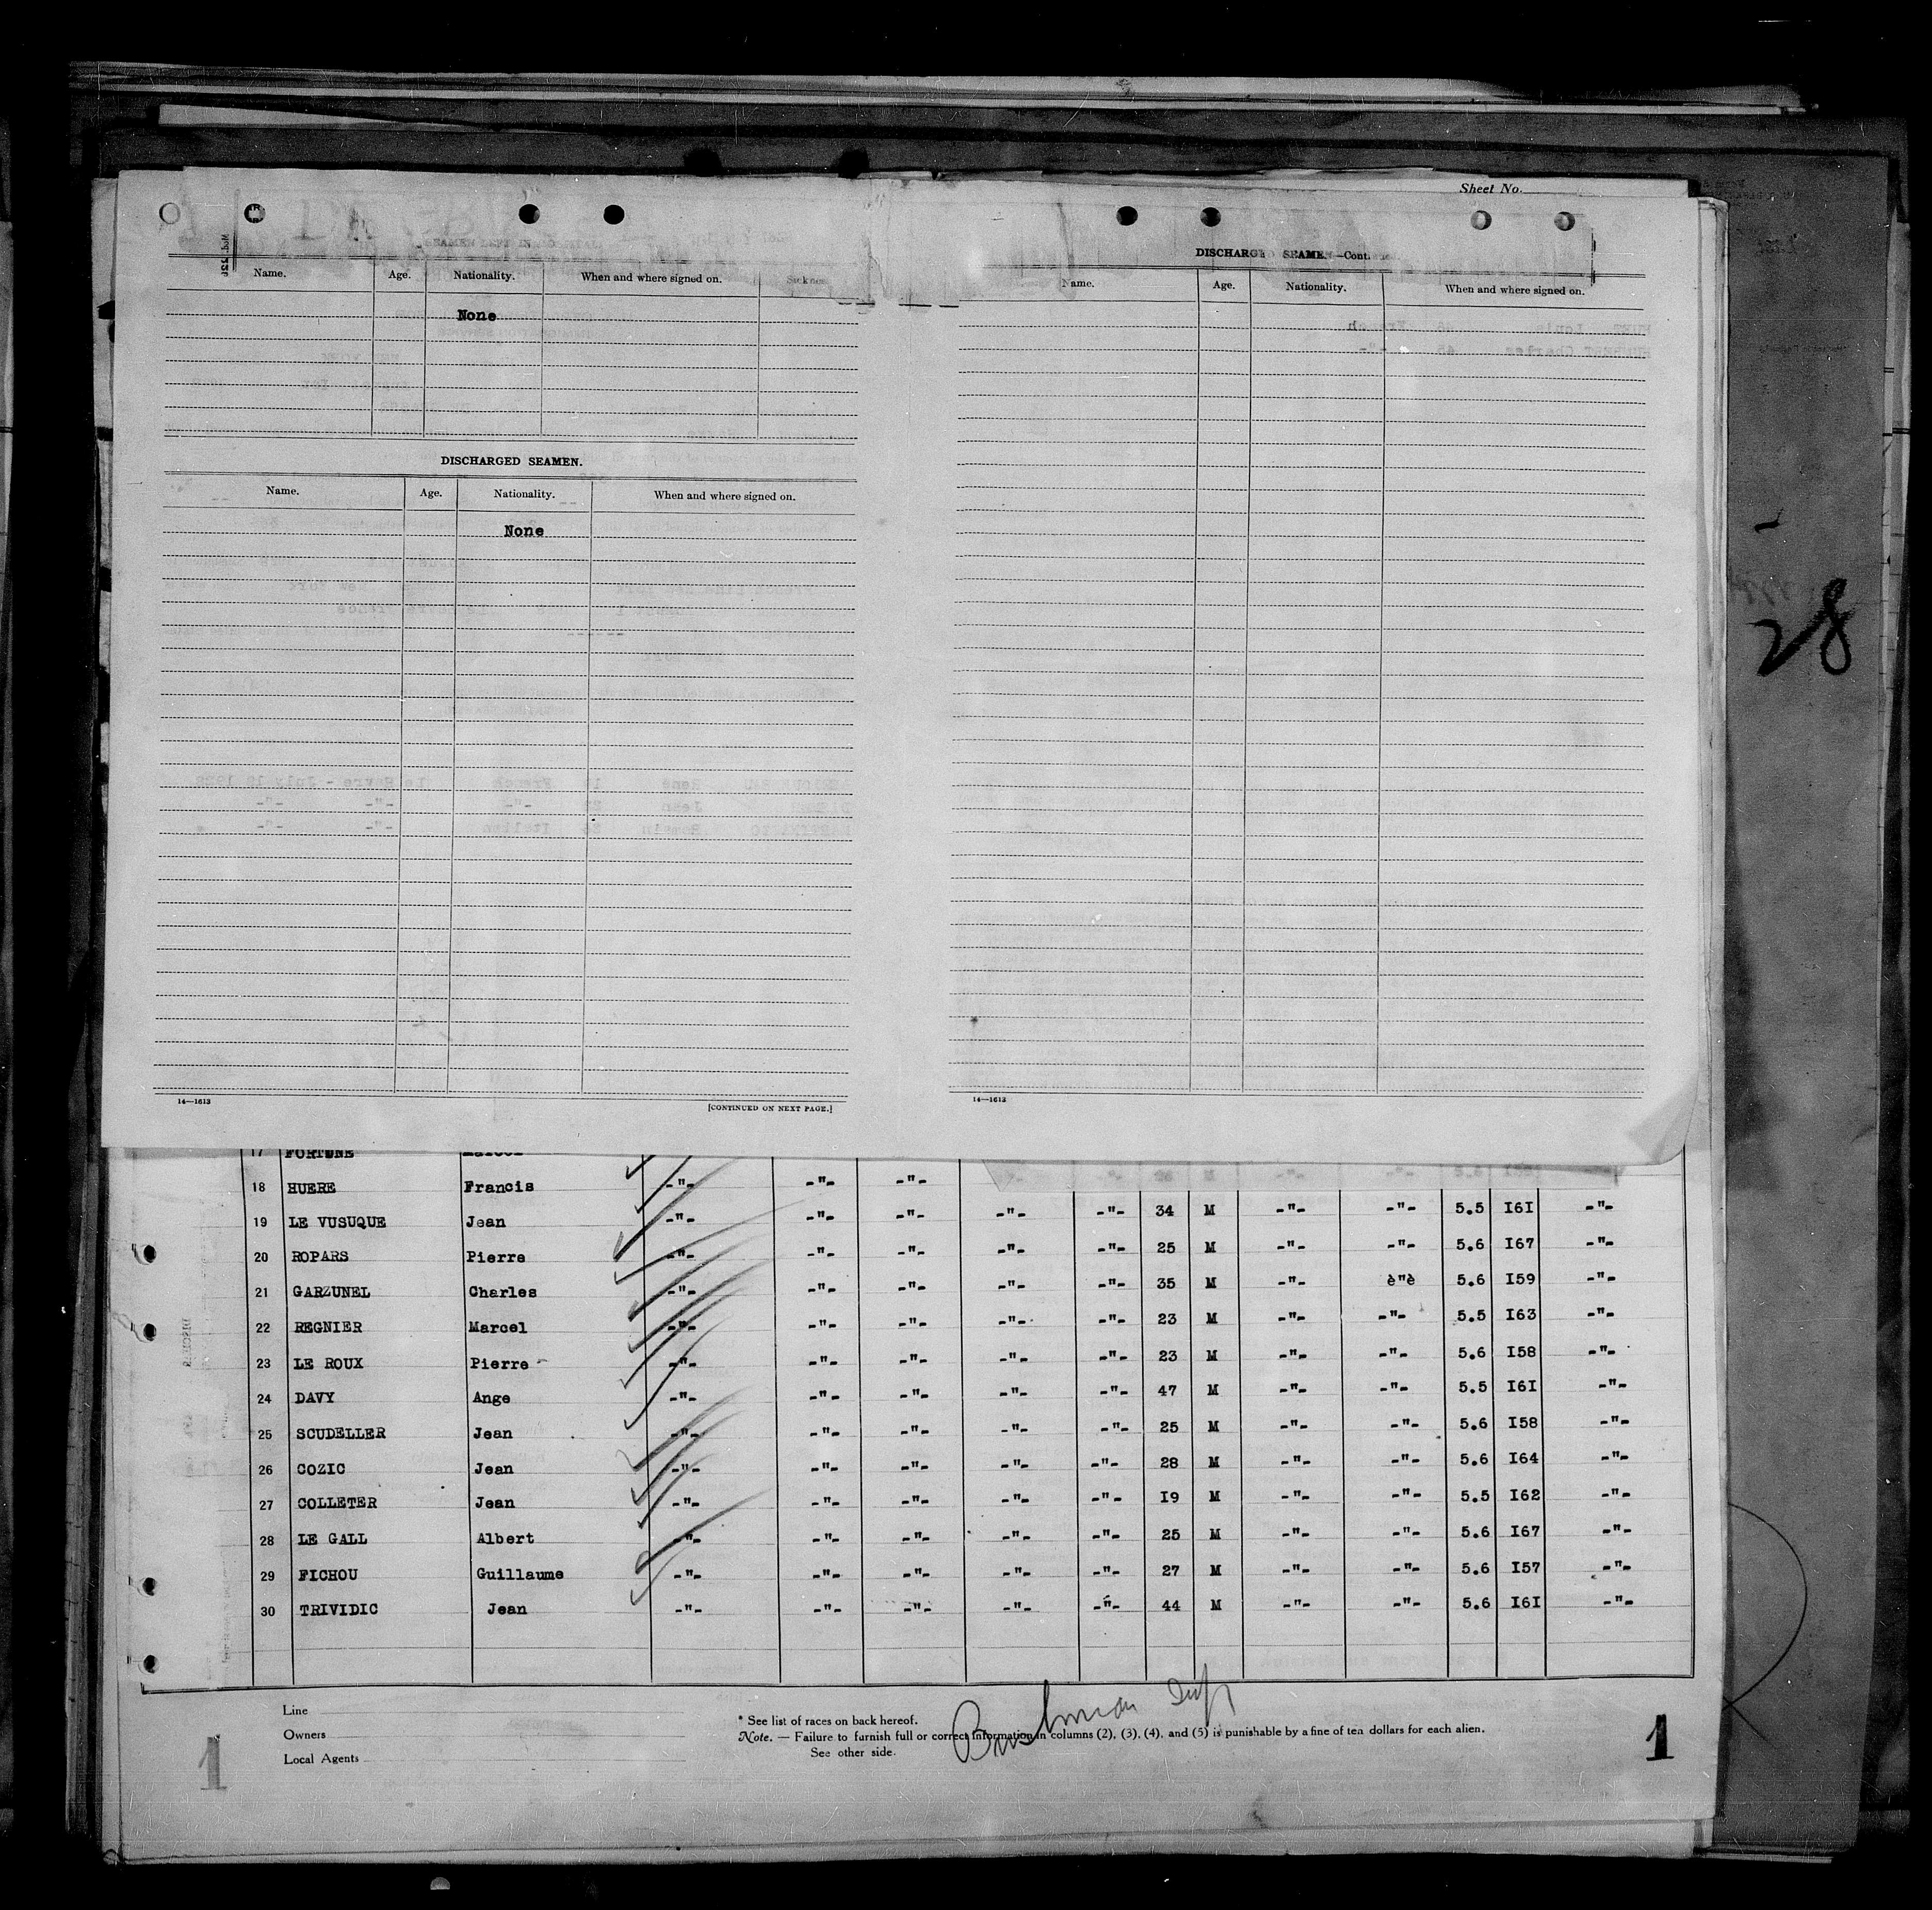 Sheet No.
Name. Age. Nationality. When and where signed on.
None
DISCHARGED SEAMEN.
Name. Age. Nationality. When and where signed on.
None
14—1613 [CONTINUED ON NEXT PAGE.]
DISCHARGED SEAMEN—Cont.
Name. Age. Nationality. When and where signed on.
14—1613
28
17 FORTUNE
18 HUERE Francis -"- -"- -"-
19 LE VUSUQUE Jean -"- -"- -"- -"- -"- 34 M -"- -"- 5.5 I6I -"-
20 ROPARS Pierre -"- -"- -"- -"- -"- 25 M -"- -"- 5.6 I67 -"-
21 GARZUNEL Charles -"- -"- -"- -"- -"- 35 M -"- è"è 5.6 I59 -"-
22 REGNIER Marcel -"- -"- -"- -"- -"- 23 M -"- -"- 5.5 I63 -"-
23 LE ROUX Pierre -"- -"- -"- -"- -"- 23 M -"- -"- 5.6 I58 -"-
24 DAVY Ange -"- -"- -"- -"- -"- 47 M -"- -"- 5.5 I6I -"-
25 SCUDELLER Jean -"- -"- -"- -"- -"- 25 M -"- -"- 5.6 I58 -"-
26 COZIC Jean -"- -"- -"- -"- -"- 28 M -"- -"- 5.6 I64 -"-
27 COLLETER Jean -"- -"- -"- -"- -"- I9 M -"- -"- 5.5 I62 -"-
28 LE GALL Albert -"- -"- -"- -"- -"- 25 M -"- -"- 5.6 I67 -"-
29 FICHOU Guillaume -"- -"- -"- -"- -"- 27 M -"- -"- 5.6 I57 -"-
30 TRIVIDIC Jean -"- -"- -"- -"- -"- 44 M -"- -"- 5.6 I6I -"-
Line
Owners
Local Agents
* See list of races on back hereof.
Note. — Failure to furnish full or correct information in columns (2), (3), (4), and (5) is punishable by a fine of ten dollars for each alien.
See other side.
1
1